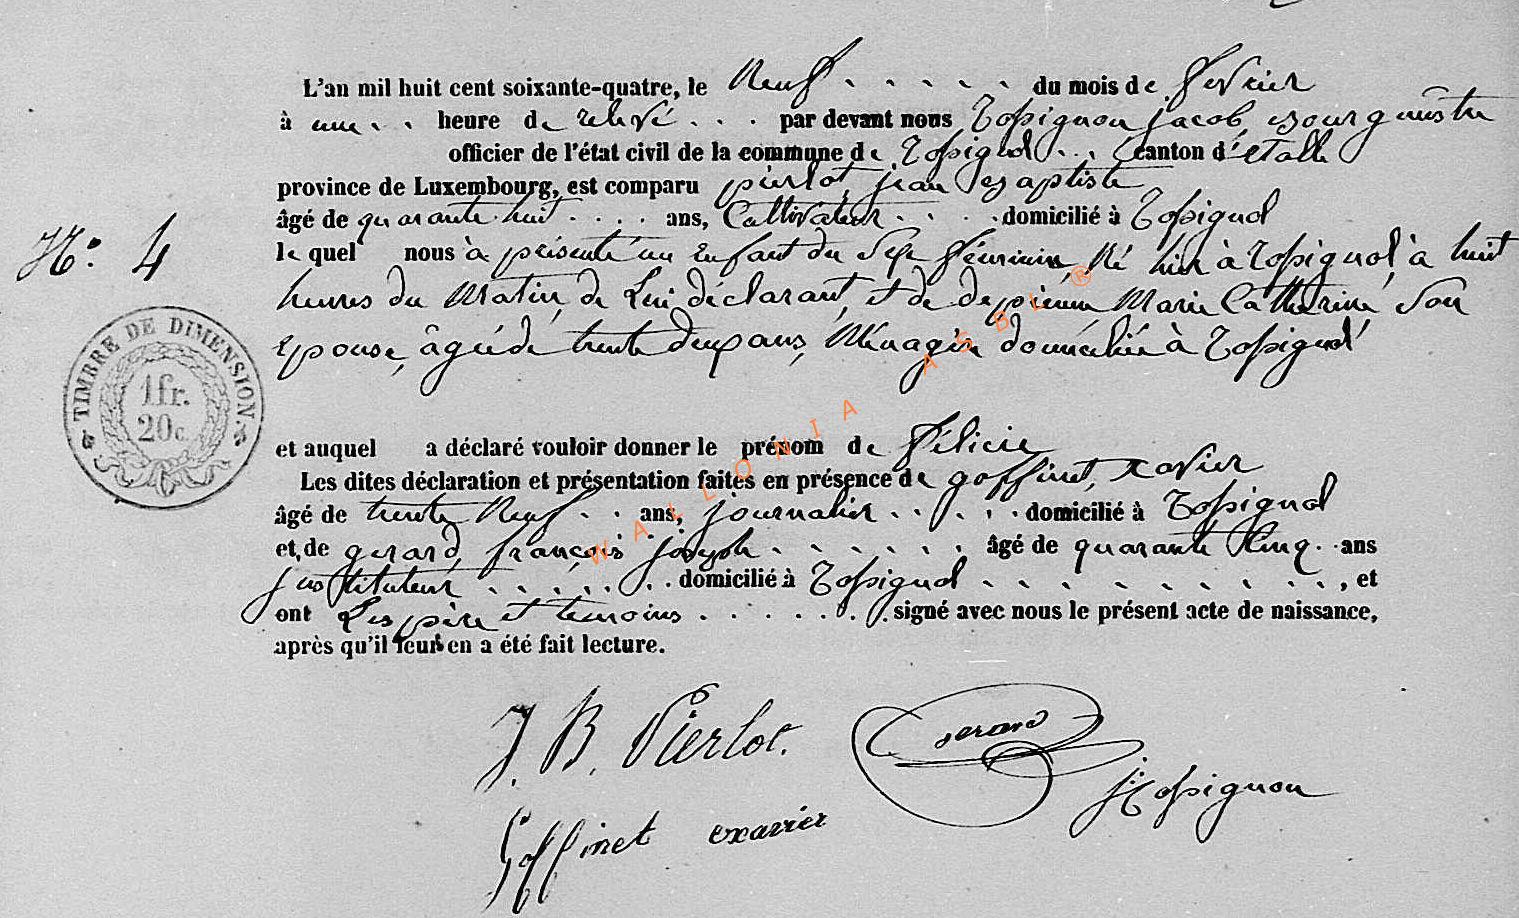 L'an mil huit cent soixante-quatre, le Neuf . . . . . du mois de fevrier
à une . . heure de relevé . . . par devant nous Topignon jacob, bourgmestre
officier de l'état civil de la commune de . . . Canton d'étalle
province de Luxembourg, est comparu pierlot, jean baptiste
âgé de quarante huit . . . . ans, Cultivateur . . . . domicilié à
le quel nous à présenté un enfant du sexe féminin, Né hier à à huit
N° 4
heures du Matin, de Lui déclarant, et de Marie Catherine Son
Epouse, âgée de trente deux ans, Menagère domiciliée à
TIMBRE DE DIMENSION.
1fr.
20c.
et auquel a déclaré vouloir donner le prénom de Félicie
Les dites déclaration et présentation faites en présence de goffinet, xavier
âgé de trente Neuf . . ans, journalier . . . . . domicilié à
et de gerard, françois joseph . . . . . . . âgé de quarante Cinq . . ans
justituteur . . . . . . . domicilié à . . . . . . . . . , et
ont Les père et temoins . . . . . . . signé avec nous le présent acte de naissance,
après qu'il leur en a été fait lecture.
J. B. Pierlot.
Gerard
J. Topignon
Goffinet exavier
WALLONIA ASBL ®